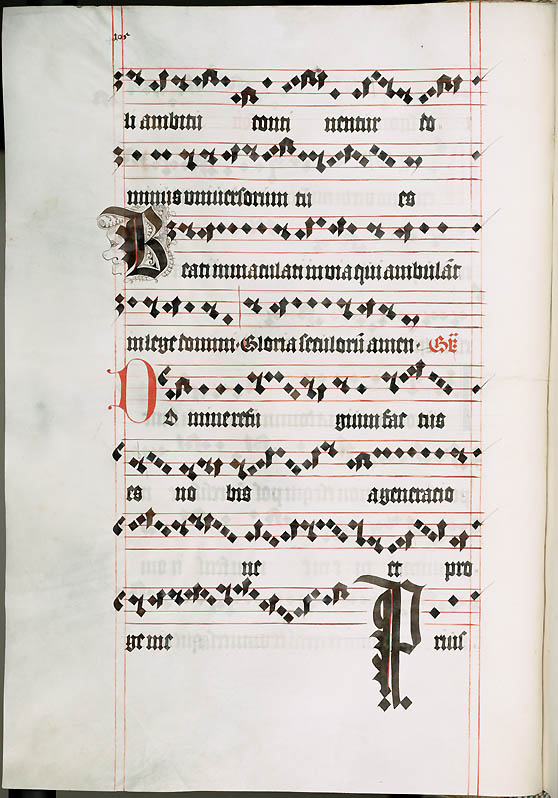 li ambitu conti nentur do
minus universorum tu es
Beati immaculati in via qui ambulāt
in lege domini · Gloria seculorū amen · Gr̄
Domine refu gium fac tus
es no bis a generacio
ne et pro
ge nie Prius